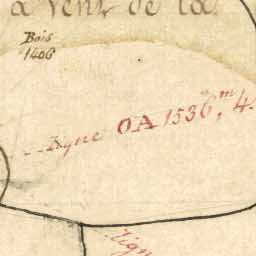 a vent de la
Bois
1406
Ligne OA 1536,m 4
Lign